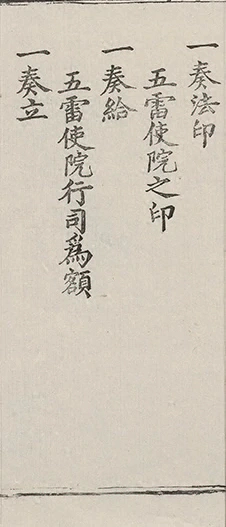 一奏法印
五雷使院之印
一奏給
五雷使院行司爲額
一奏立